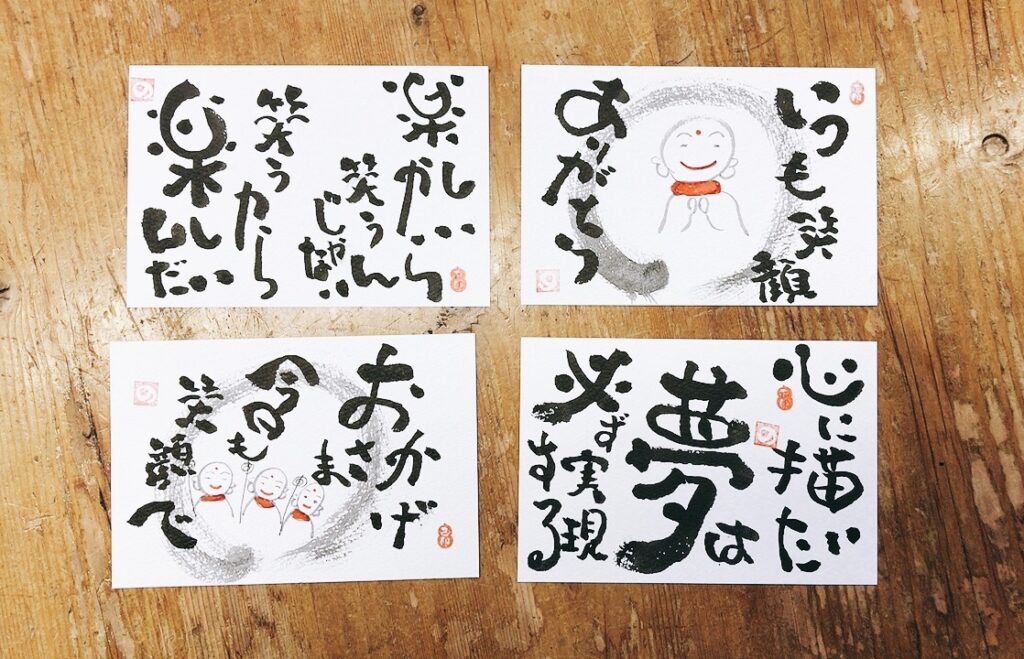 楽しいから
笑うん
じゃない
笑う
から
楽しいんだ
いつも笑顔
ありがとう
おかげ
さま
今日も
笑顔で
心に描いた
夢は
必ず実現
する